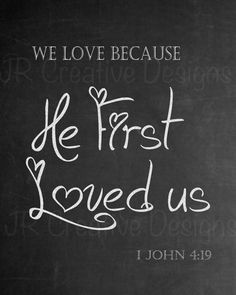 JR Creative Designs
WE LOVE BECAUSE
He First
Loved us
JR Creative Designs
1 JOHN 4:19